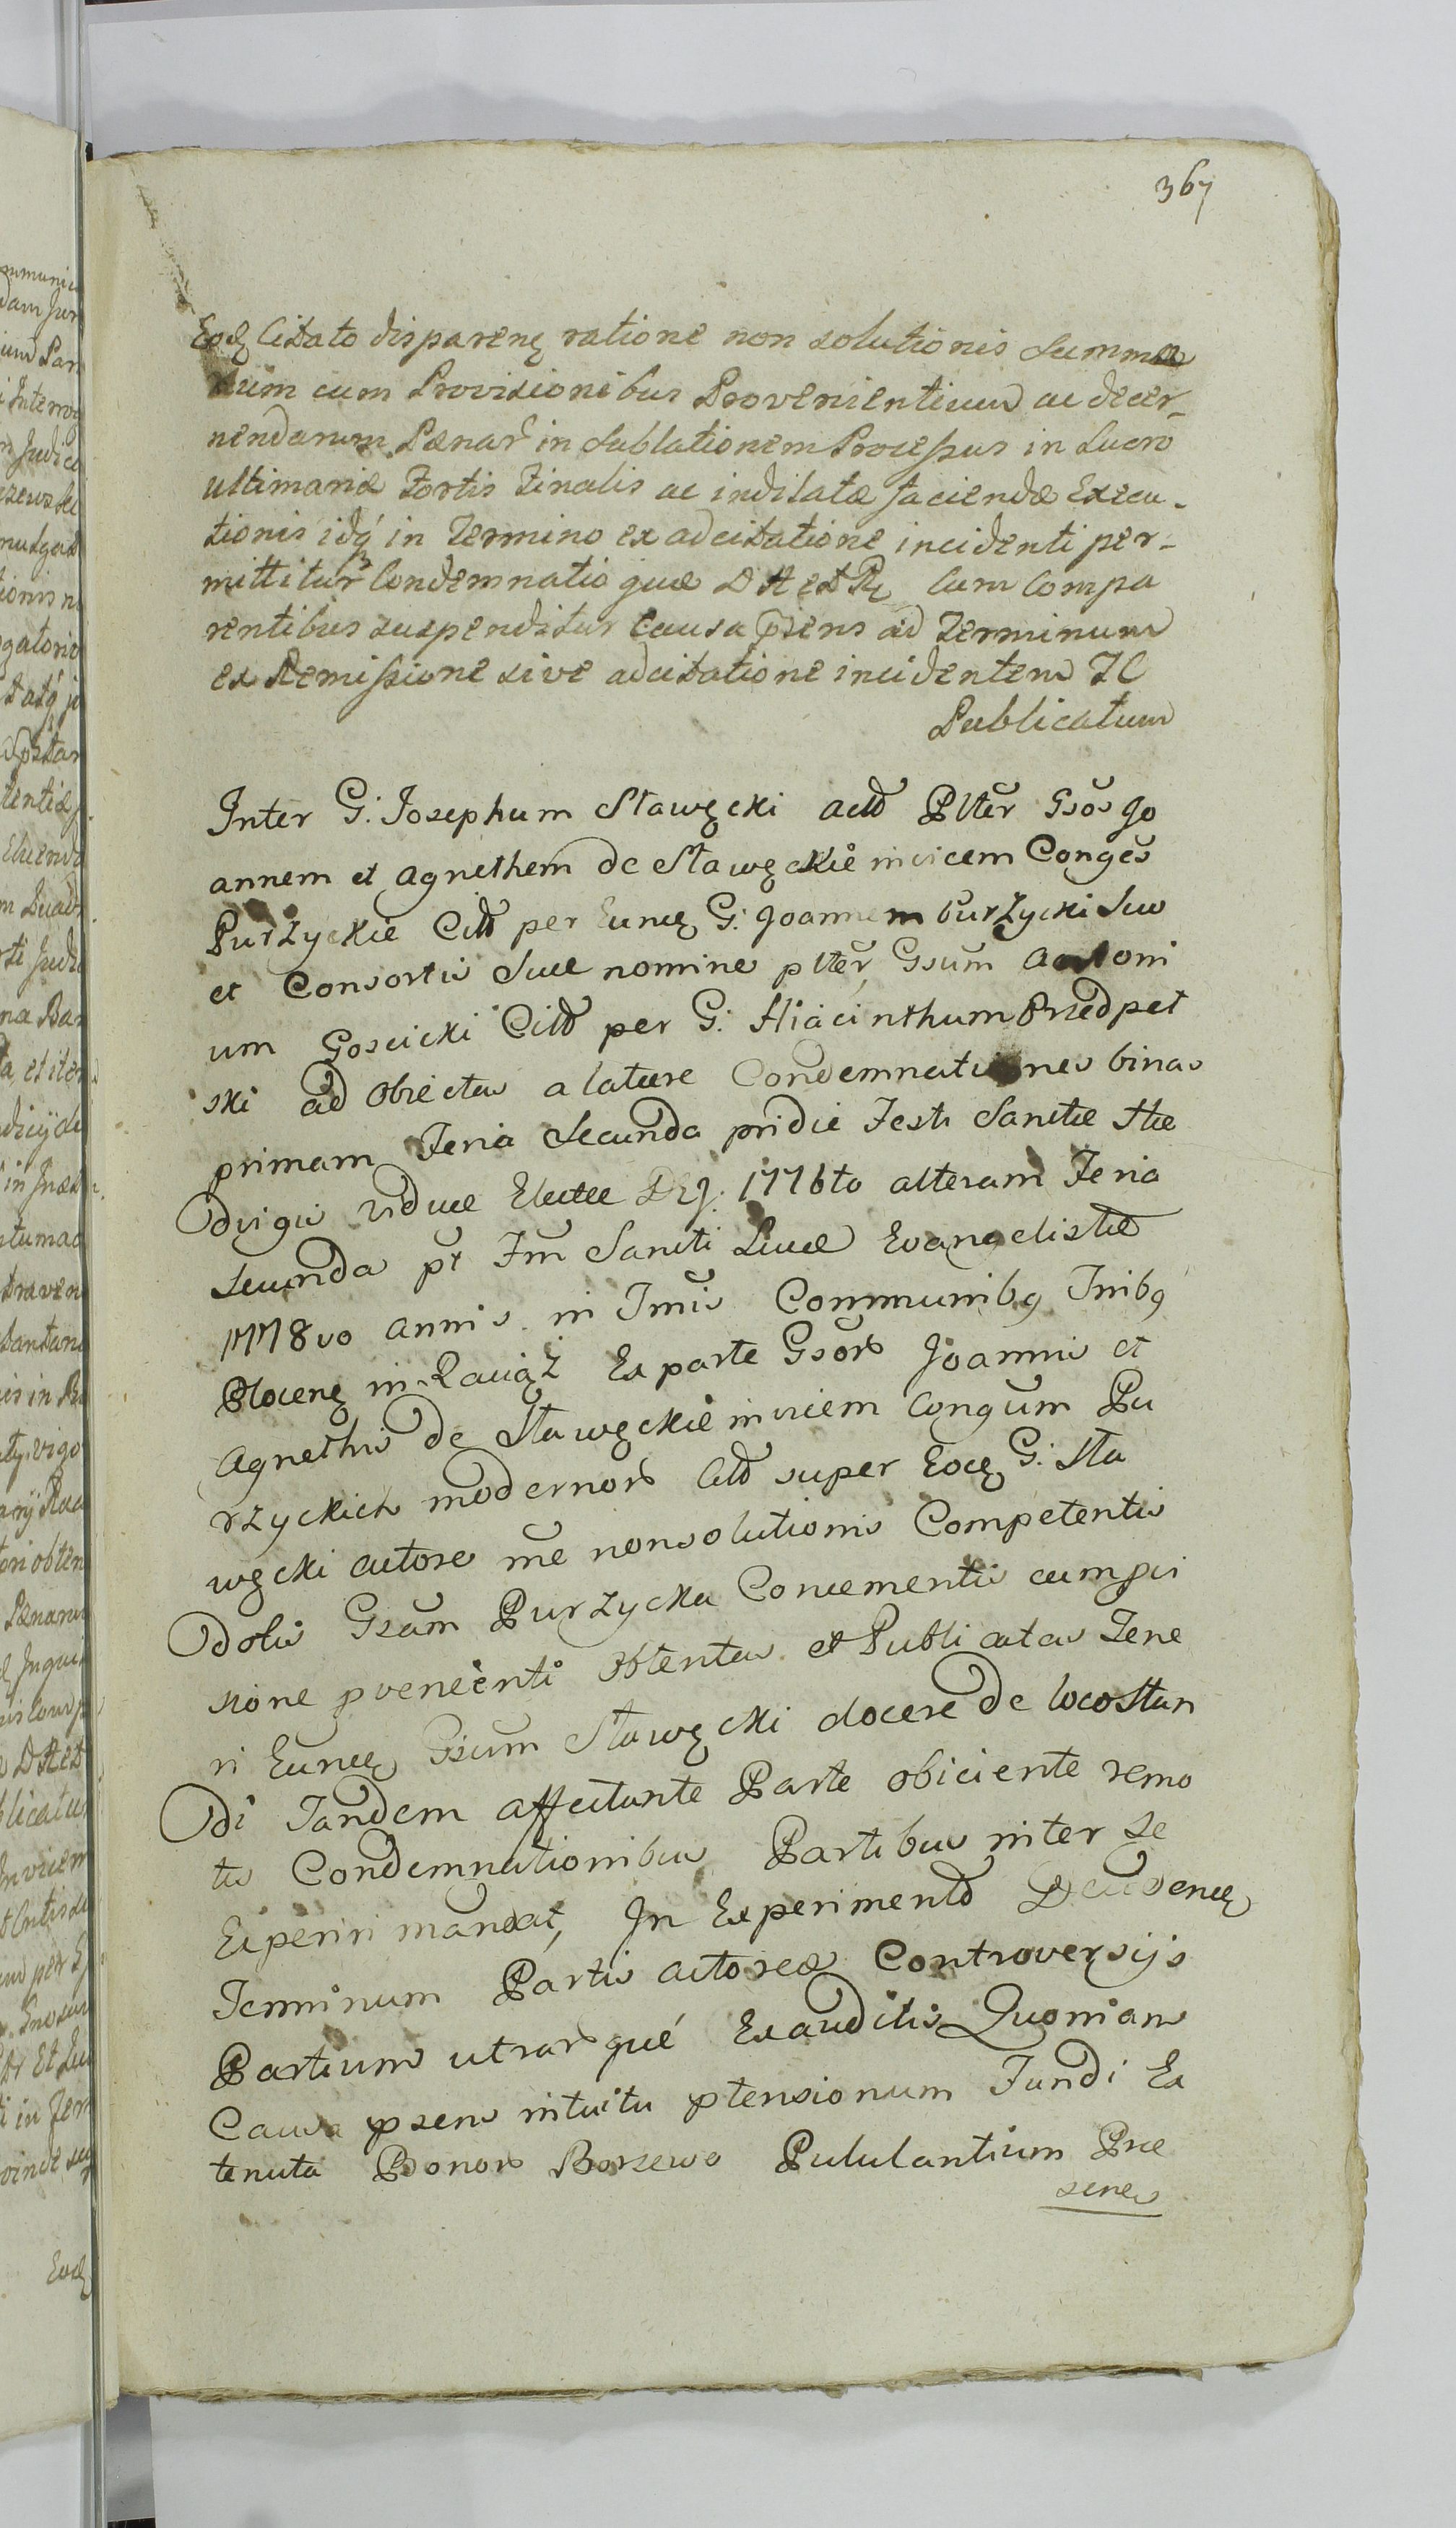 367
Eodę Citato disparenę ratione non solutionis Summa
rum cum Provisionibus Provenientium ac decer-
nendarum Pænar in Sublationem Processus in Lucro
ultimariæ Fortis Finalis ac indilatæ faciendæ Execu-
tionis idq́ in Termino ex adcitatione incidenti per-
mittitur Condemnatio quæ D A et Rę Cum Compa
rentibus suspenditur Causa pñens ad Terminum
ex Remissione sive adcitatione incidentem TC
Publicatum
Inter G: Josephum Stawęcki actt Plter Gsos Jo
annem et Agnethem de Stawęckie invicem Conges
Purzyckie Citt per Euncę G: Joannem Purzycki Suo
et Consortis Suæ nomine plter Gsum Antoni
um Goscicki Citt per G: Hiacinthum Przedpet
ski ad Obiectas a latere Condemnationes binas
primam Feria Secunda pridie Festi Sanctæ Hæ
dvigis viduæ Electæ 1776to alteram Feria
Secunda pt Fm Sancti Lucæ Evangelistæ
1778vo annis in Tmis Communibq Tribq
Plocenę in Raciąż Ex parte Gsor Joannis et
Agnethis de Stawęckie invicem Congum Pu
rzyckich modernor Citt super Eocę G: Sta
węcki actore rñe nonsolutionis Competentis
dotis Gsam Purzycka Concernentis cum pvi
sione pvenienti Obtentas et Publicatas Tene
ri Euncę Gsum Stawęcki docere de locostan
di Tandem affectante Parte obiiciente remo
tis Condemnationibus Partibus inter se
Experiri mandat, In Experimento
Terminum Partis actoreæ Controversijs
Partium utrarqué Exauditis Quoniam
Causa psens intuitu ptensionum Fundi Ex
tenuta Bonor Borzewo Pululantium Præ
senes